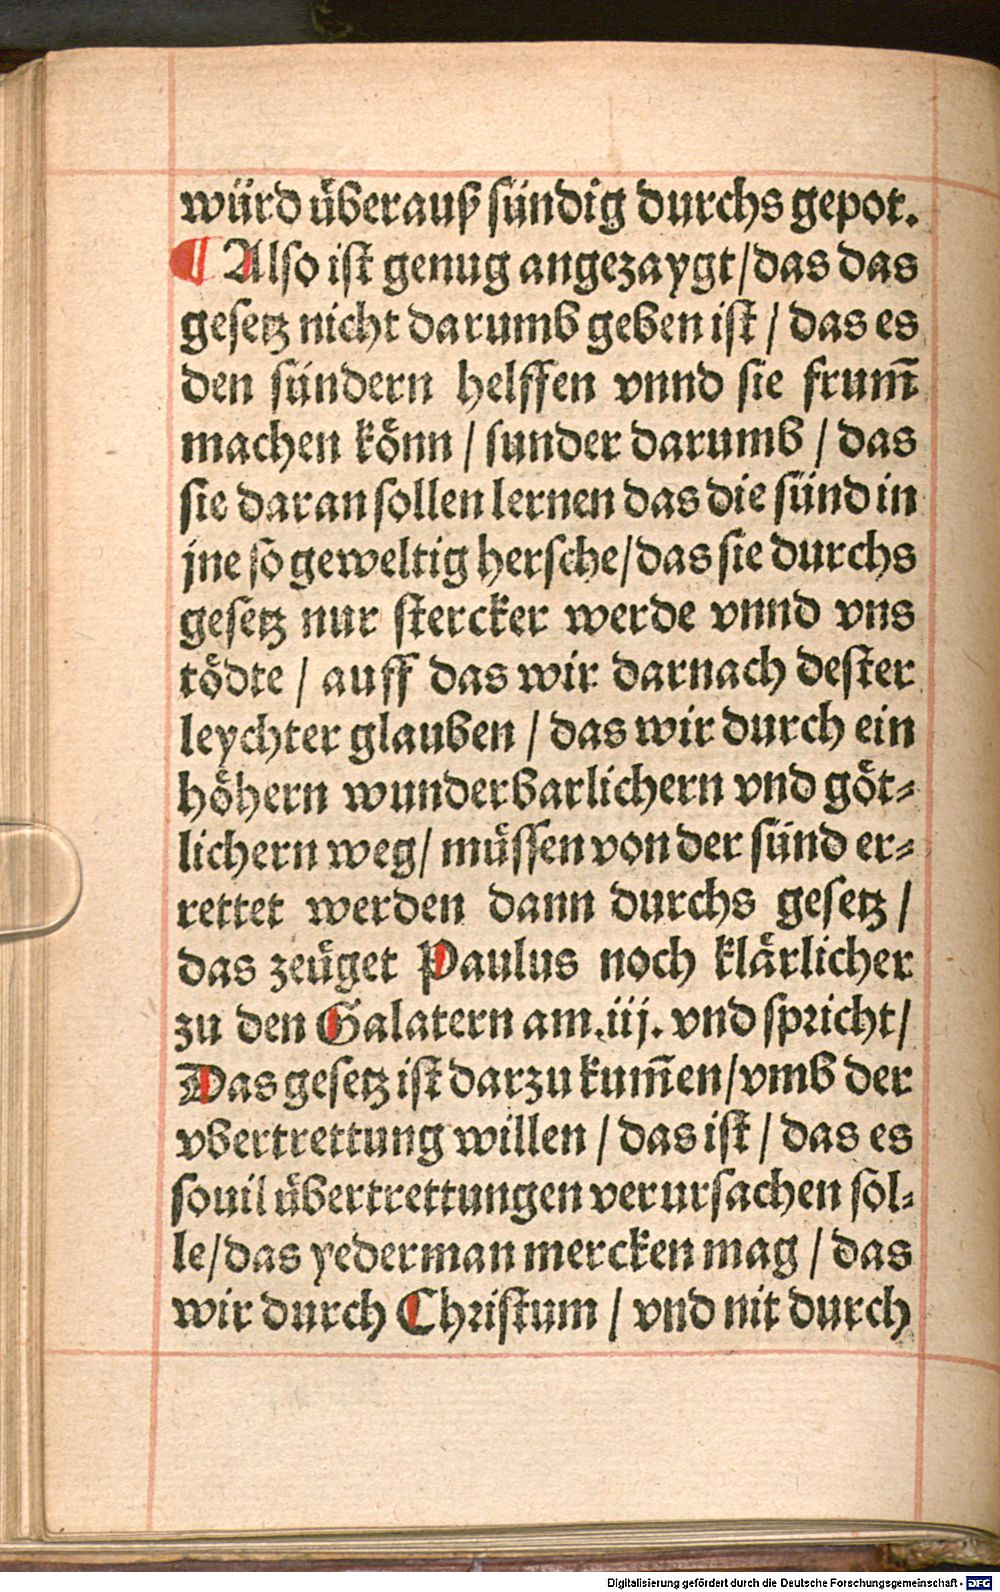 würd überauß sündig durchs gepot.
¶ Also ist genug angezaygt/das das
gesetz nicht darumb geben ist / das es
den sündern helffen vnnd sie frum̃
machen könn / sunder darumb / das
sie daran sollen lernen das die sünd in
jne so geweltig hersche/das sie durchs
gesetz nur stercker werde vnnd vns
tödte / auff das wir darnach dester
leychter glauben / das wir durch ein
höhern wunderbarlichern vnd göt⸗
lichern weg/ müssen von der sünd er⸗
rettet werden dann durchs gesetz /
das zeüget Paulus noch klärlicher
zu den Galatern am.iij. vnd spricht/
Das gesetz ist darzu kum̃en/vmb der
vbertrettung willen / das ist / das es
souil übertrettungen verursachen sol⸗
le/das yederman mercken mag / das
wir durch Christum / vnd nit durch
Digitalisierung gefördert durch die Deutsche Forschungsgemeinschaft - DFG